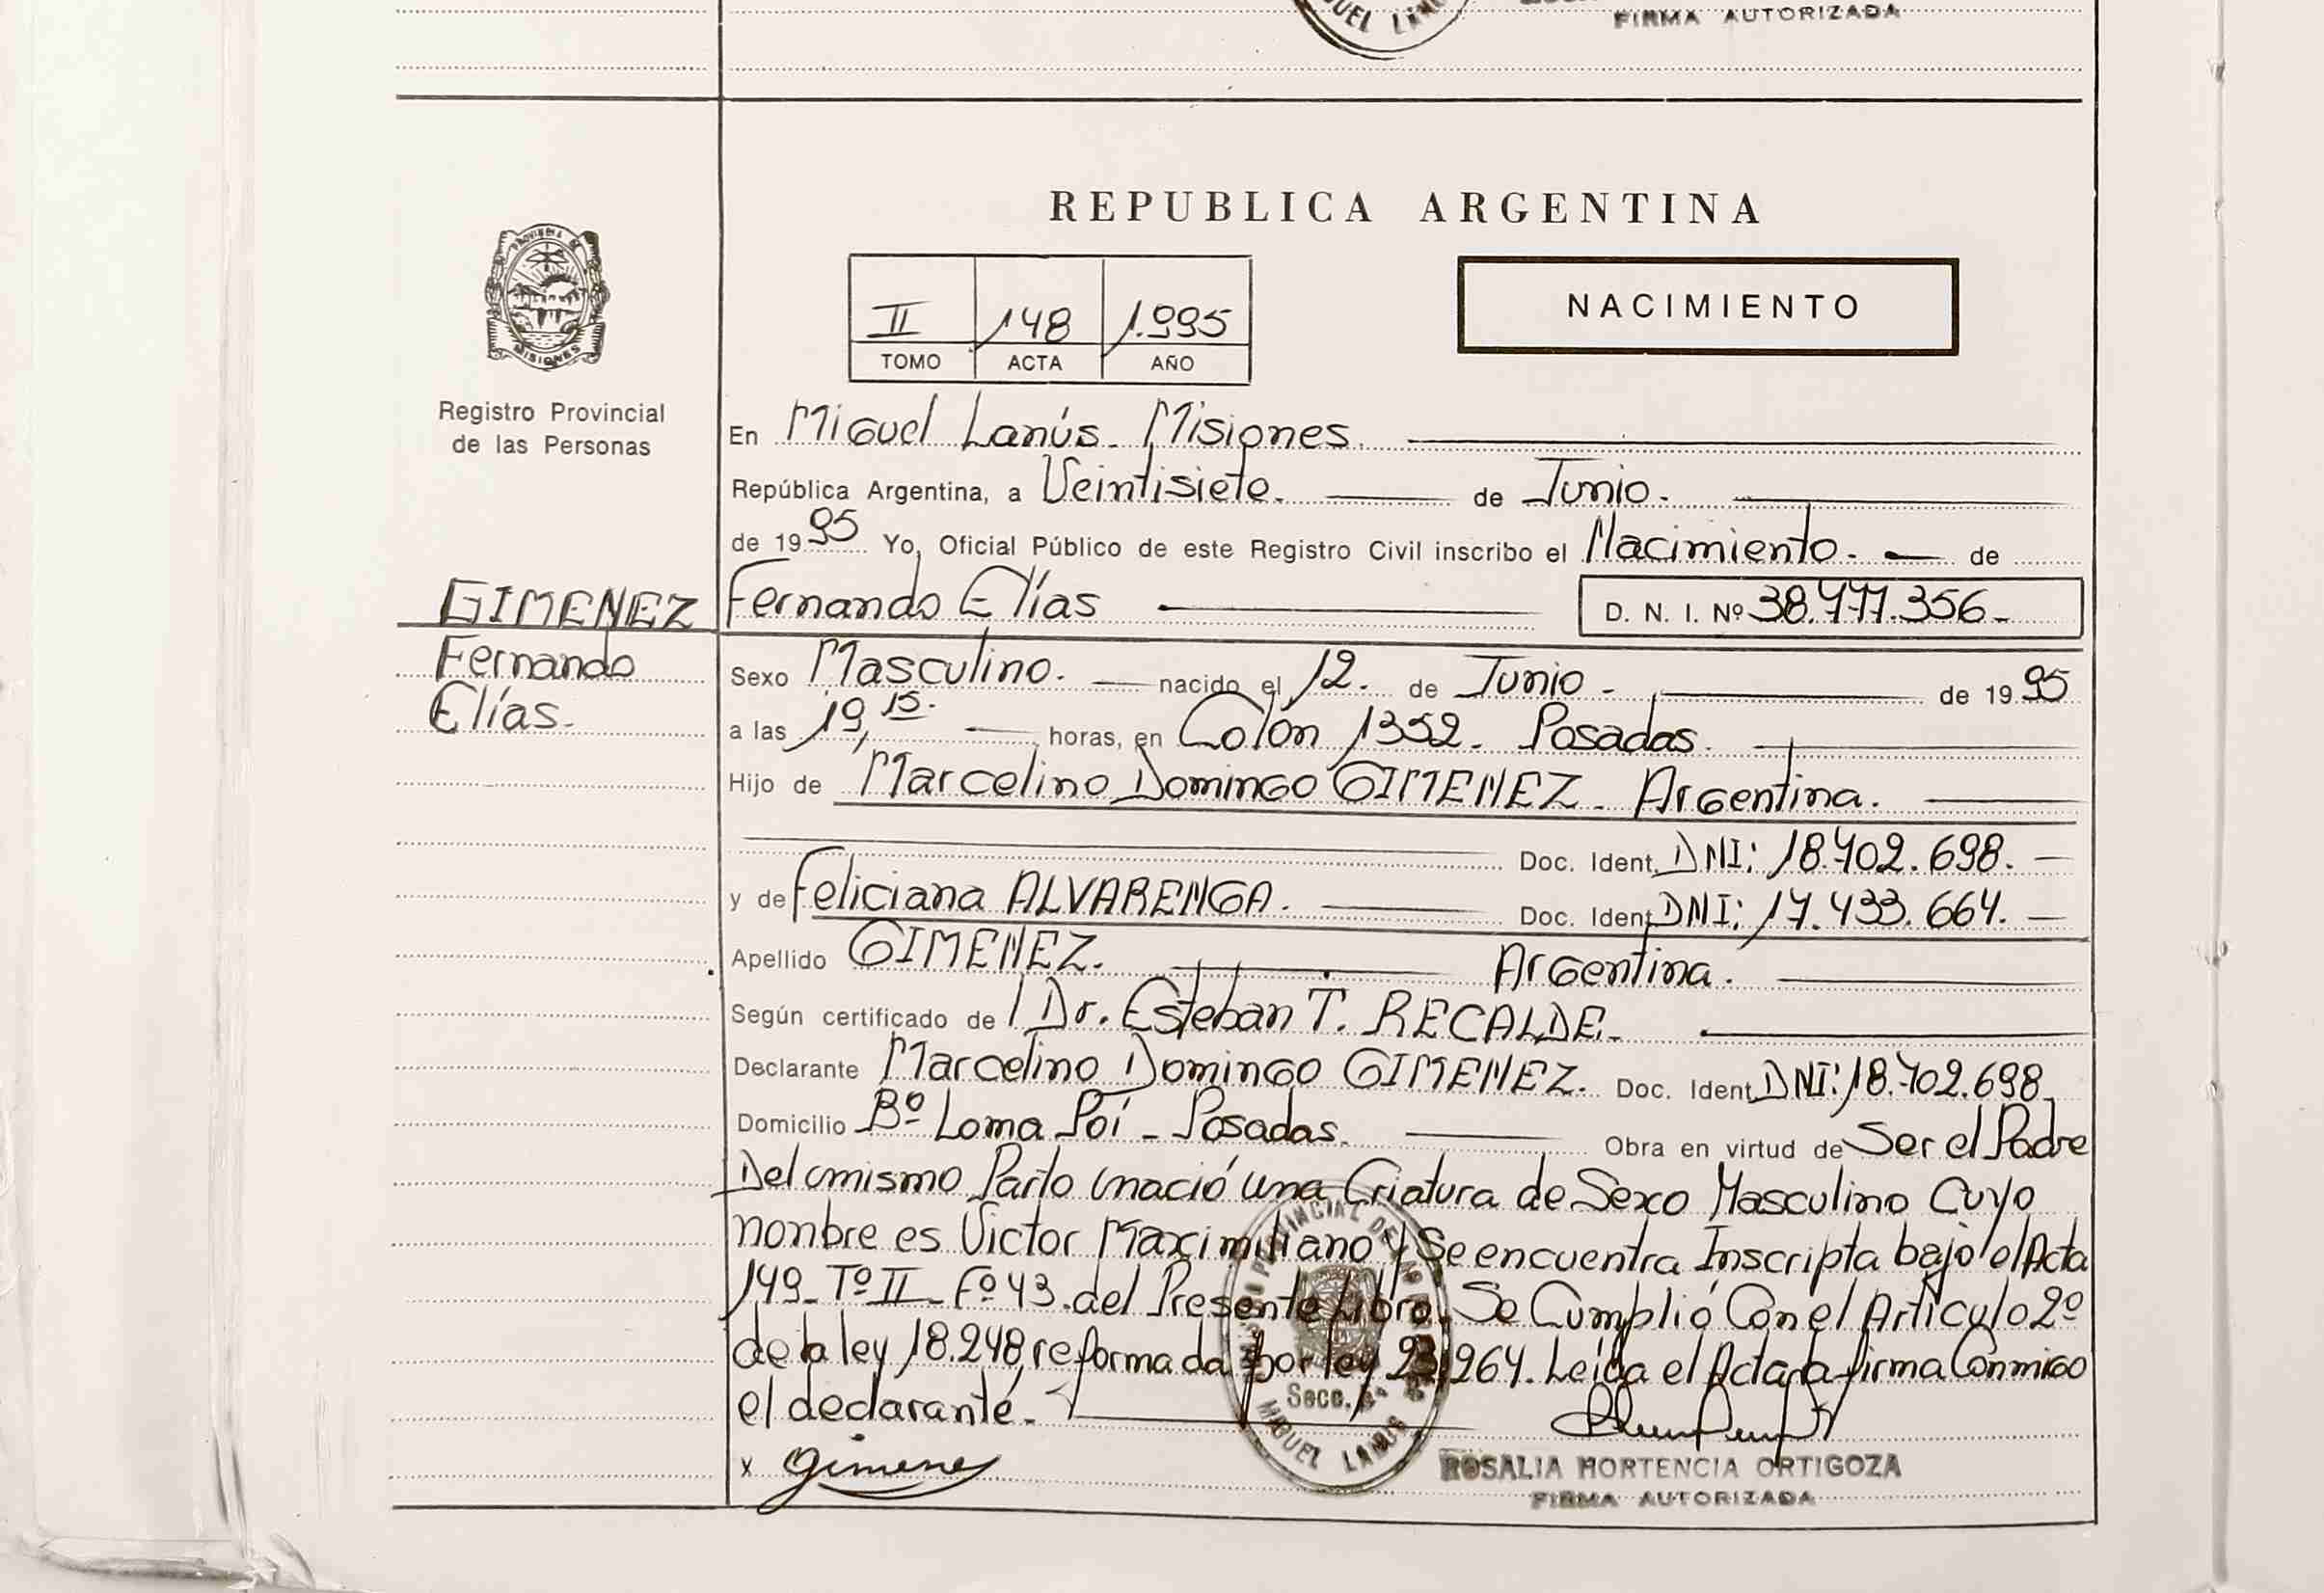 MIGUEL LANUS
FIRMA AUTORIZADA
REPUBLICA ARGENTINA
PROVINCIA DE
MISIONES
II 148 1.995
TOMO ACTA AÑO
NACIMIENTO
Registro Provincial
de las Personas
En Miguel Lanús. Misiones.
República Argentina, a Veintisiete. de Junio.
de 1995 Yo, Oficial Público de este Registro Civil inscribo el Nacimiento. de
GIMENEZ
Fernando
Elías.
Fernando Elías D. N. I. Nº 38.777.356-
Sexo Masculino. nacido el 12. de Junio. de 1995
a las 19,15. horas, en Colón 1352. Posadas.
Hijo de Marcelino Domingo GIMENEZ. Argentina.
Doc. Ident. DNI: 18.702.698.
y de Feliciana ALVARENGA. Doc. Ident. DNI: 17.433.664.
Apellido GIMENEZ. Argentina.
Según certificado de Dr. Esteban T. RECALDE.
Declarante Marcelino Domingo GIMENEZ. Doc. Ident. DNI: 18.702.698
Domicilio Bº Loma Poí - Posadas. Obra en virtud de Ser el Padre
Del mismo Parto nació una Criatura de Sexo Masculino Cuyo
nonbre es Victor Maximiliano y Se encuentra Inscripta bajo el Acta
149- Tº II- Fº 43. del Presente Libro. Se Cumplió Con el Artículo 2º
de la ley 18.248, reformada por ley 23.264. Leída el Acta, la firma Conmigo
el declarante.
x Gimenez
Secc. 4ª
MIGUEL LANUS
ROSALIA HORTENCIA ORTIGOZA
FIRMA AUTORIZADA